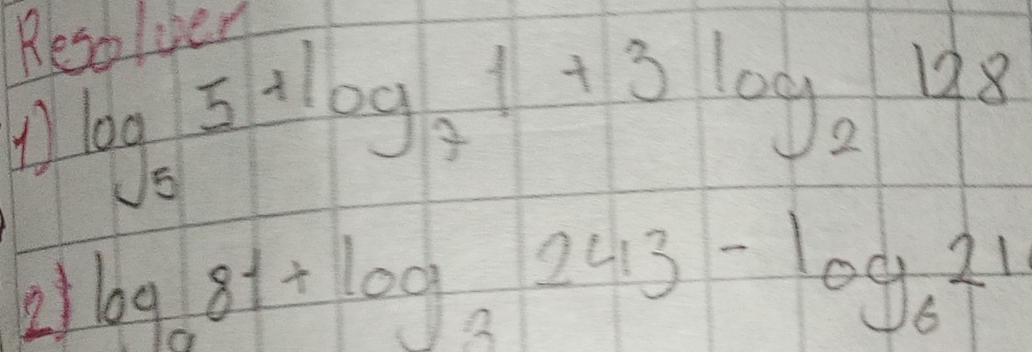 Resolver
1) log₅ 5 + log₇ 1 + 3 log₂ 128
2) log₉ 81 + log₃ 243 - log₆ 21